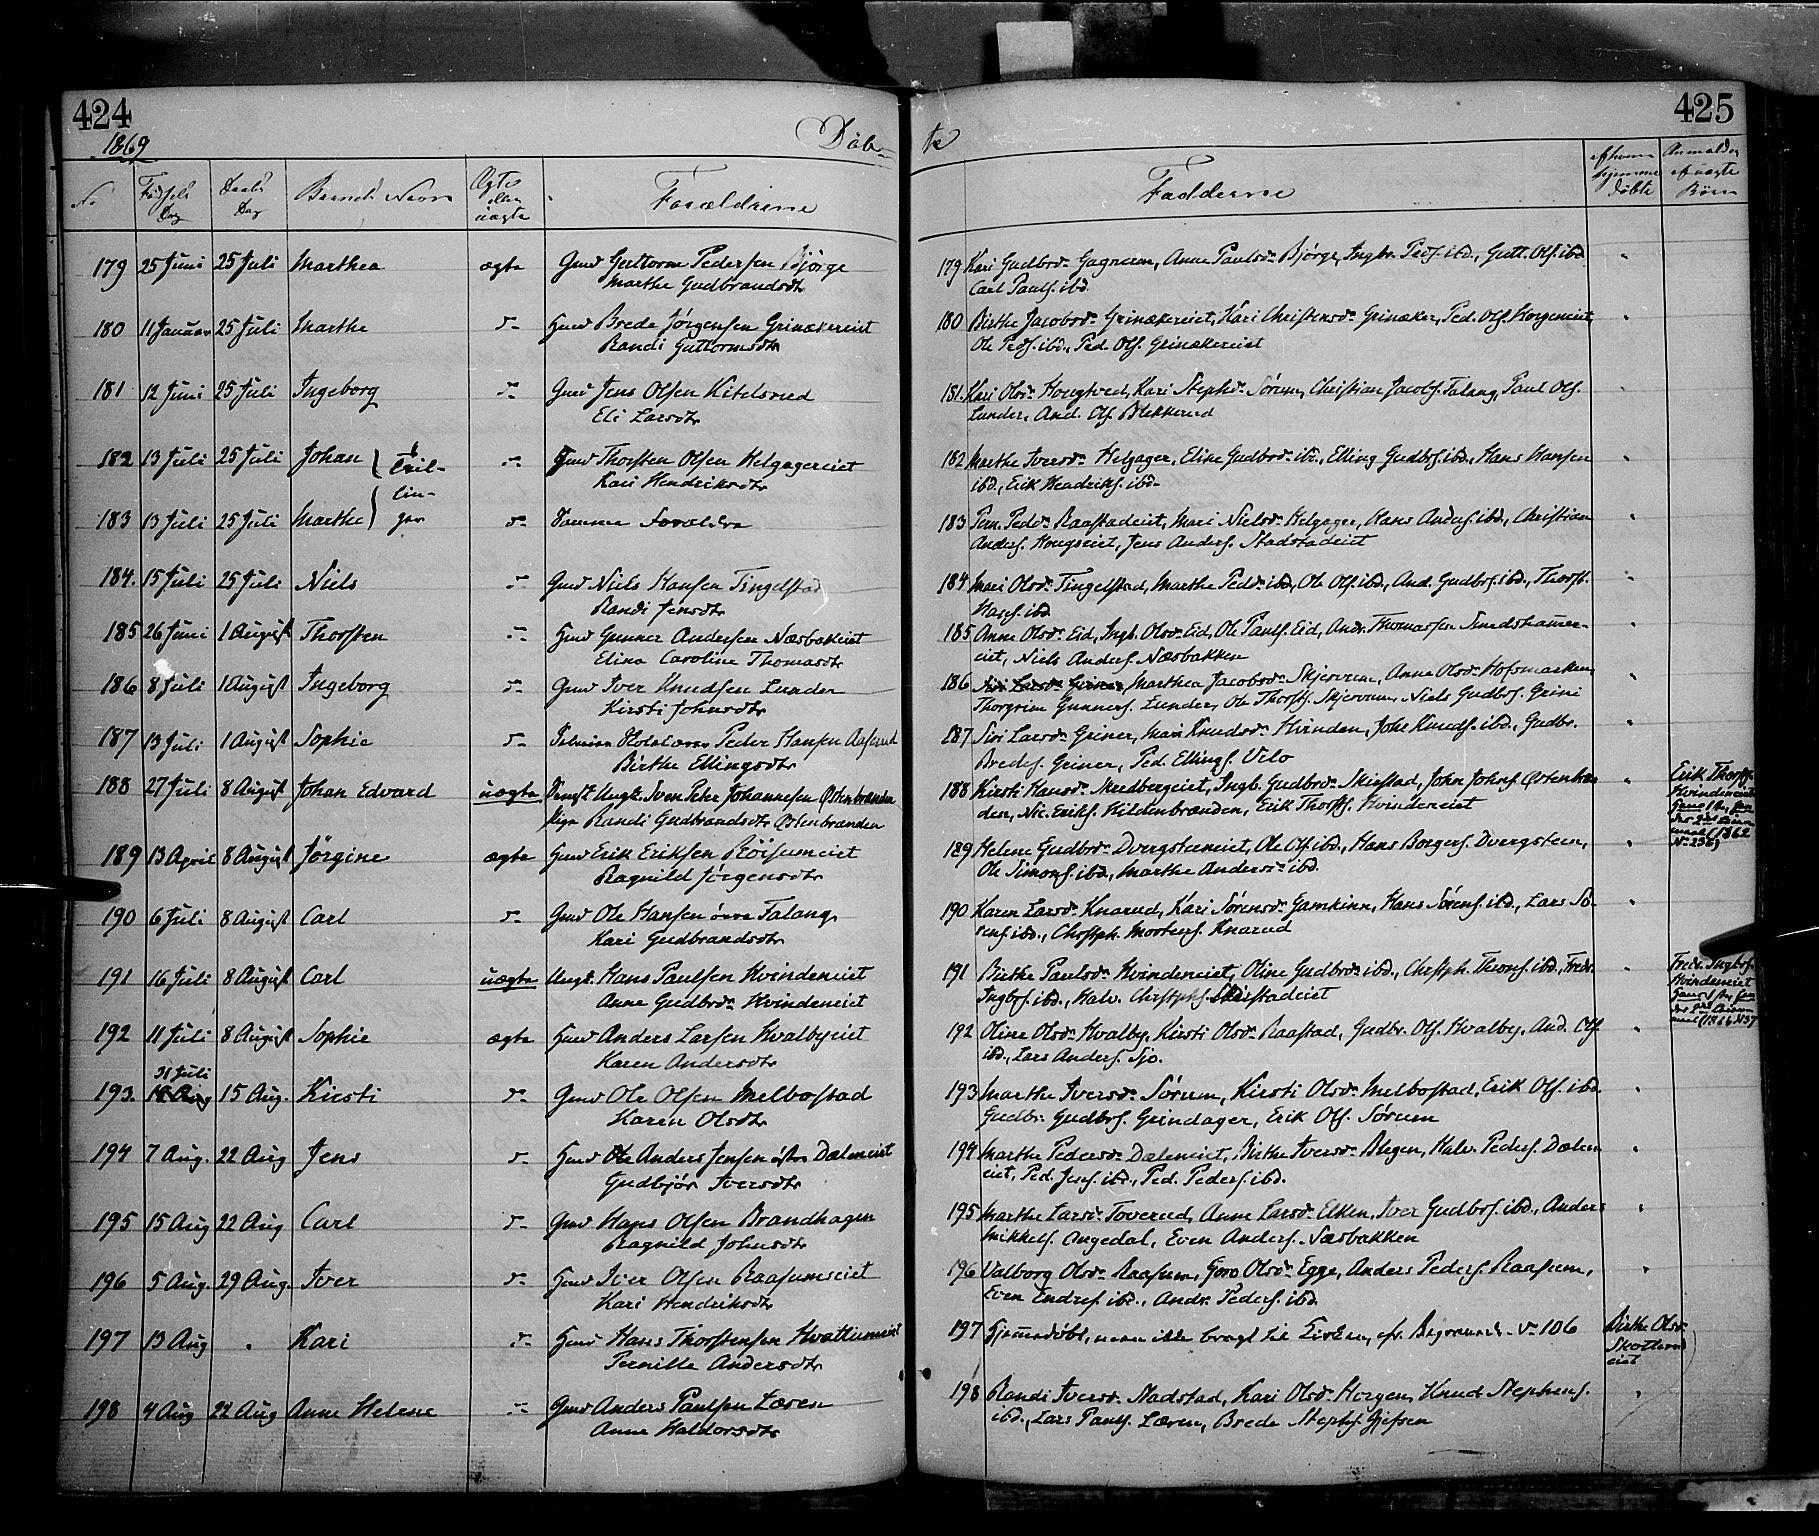 424
1869
Døb-
No
Fødsels Dag
Daabs Dag
Barnets Navn
Ægte eller uægte
Forældrene
179 25 Juni 25 Juli Marthea ægte Gmd Guttorm Pedersen Bjørge
Marthe Gudbrandsdtr
180 11 Januar 25 Juli Marthe d- Hmd Brede Jørgensen Grinakereiet
Randi Guttormsdtr
181 12 Juni 25 Juli Ingeborg d- Gmd Jens Olsen Kitelsrud
Eli Larsdtr
182 13 Juli 25 Juli Johan Tvil- d- Hmd Thorsten Olsen Helgagereiet
Kari Hendriksdtr
lin-
183 13 Juli 25 Juli Marthe ger d- Samme Forældre
184. 15 Juli 25 Juli Niels d- Gmd Niels Hansen Tingelstad
Randi Jensdtr
185 26 Juni 1 August Thorsten d- Hmd Gunner Andersen Næsbakkeiet
Elina Caroline Thomasdtr
186 8 Juli 1 August Ingeborg d- Gmd Iver Knudsen Lunder
Kirsti Johnsdtr
187 13 Juli 1 August Sophie d- Peder Hansen Aaserud
Birthe Ellingsdtr
188 27 Juli 8 August Johan Edvard uægte Ungk. Sven Peter Johannesen Østenbrænden
Pige Randi Gudbrandsdtr Østenbrænden
189 13 April 8 August Jørgine ægte Hmd Erik Eriksen Røisumeiet
Ragnild Jørgensdtr
190 6 Juli 8 August Carl d- Gmd Ole Hansen øvre Falang
Kari Gudbrandsdtr
191 16 Juli 8 August Carl uægte Ungk. Hans Paulsen Hvindeneiet
Anne Gudbrdr Hvindeneiet
192 11 Juli 8 August Sophie ægte Hmd Anders Larsen Hvalbyeiet
Karen Andersdtr
31 Juli
193. 15 Aug. Kirsti d- Gmd Ole Olsen Melbostad
Karen Olsdtr
194 7 Aug. 22 Aug Jens d- Hmd Ole Anders Jensen østre Dæleneiet
Gudbjør Iversdtr
195 15 Aug 22 Aug Carl d- Gmd Hans Olsen Brandhagen
Ragnild Johnsdtr
196 5 Aug. 29 Aug. Iver d- Hmd Iver Olsen Raasumseiet
Kari Hendriksdtr
197 13 Aug Kari d- Hmd Hans Thorstensen Hvattumeiet
Pernille Andersdtr
198 4 Aug 22 Aug Anne Helene d- Gmd Anders Paulsen Læren
Anne Haldorsdtr
425
te
Fadderne
af hvem hjemme døbte
Anmelder af uægte Børn
179 Kari Gudbrdr Gagnum, Anne Paulsdr Bjørge, Ingbr. Peds. ibd., Gutt. Ols. ibd.
Carl Pauls. ibd.
180 Birthe Jacobsdr Grinakereiet, Kari Christensdr Grinaker, Ped. Ols. Horgeneiet,
Ole Peds. ibd., Ped. Ols. Grinakereiet
181. Kari Olsdr Hougtved, Kari Stephdr Sørum, Christian Jacobs. Falang, Paul Ols.
Lunder, And. Ols. Blekkerud
182 Marthe Iversdr Helgager, Eline Gudbrdr ibd., Elling Gudbrs. ibd., Hans Hansen
ibd., Erik Hendriks. ibd.
183 Pern. Pedsdr Raastadeiet, Mari Nielsdr Helgager, Hans Anders. ibd., Christian
Anders. Hougseiet, Jens Anders. Stadstadeiet
184 Mari Olsdr Tingelstad, Marthe Pedsdr ibd., Ole Ols. ibd., And. Gudbrs. ibd., Thorst.
Hans. ibd.
185 Anne Olsdr Eid, Ingb. Olsdr Eid, Ole Pauls. Eid, Andr. Thomassen Smedshamer-
eiet, Niels Anders. Næsbakken
186 Siri Larsdr Griner, Marthea Jacobsdr Skjervum, Anne Olsdr Hofsmarken,
Thorgrim Gunners. Lunder, Ole Thorsts. Skjervum, Niels Gudbrs. Grini
187 Siri Larsdr Griner, Mari Knudsdr Hvinden, Johs Knuds. ibd., Gudbr.
Bredes. Griner, Ped. Ellings. Velo
188 Kirsti Hansdr Skredbergeiet, Ingb. Gudbrdr Skirstad, John Johns. Østenbræn-
den, Nic. Eriks. Hildenbrænden, Erik Thorsts. Hvindeneiet
Erik Thorsts.
Hvindeneiet
1862
189 Helene Gudbrdr Dvergsteneiet, Ole Ols. ibd., Hans Borgers. Dvergsteen,
Ole Simons. ibd., Marthe Andersdr ibd.
190 Karen Larsdr Knarud, Kari Sørensdr Gamkinn, Hans Sørens. ibd., Lars Sø-
rens. ibd., Christph. Mortens. Knarud
191 Birthe Paulsdr Hvindeneiet, Oline Gudbrdr ibd., Christph. Thores. ibd., Fredr.
Ingbrs. ibd., Halv. Christphs. Skirstadeiet
Fredr. Ingbrs.
Hvindeneiet
192 Oline Olsdr Hvalby, Kirsti Olsdr Raastad, Gudbr. Ols. Hvalby, And. Ols.
ibd., Lars Anders. Sjo.
193 Marthe Iversdr Sørum, Kirsti Olsdr Melbostad, Erik Ols. ibd.
Gudbr. Gudbrs. Grindager, Erik Ols. Sørum
194 Marthe Pedersdr Dæleneiet, Birthe Iversdr Blegen, Halv. Peders. Dælen-
eiet, Ped. Jens. ibd., Ped. Peders. ibd.
195 Marthe Larsdr Toverud, Anne Larsdr Elken, Iver Gudbrs. ibd., Anders
Mikkels. Angedal, Even Anders. Næsbakken
196 Valborg Olsdr Raasum, Goro Olsdr Egge, Anders Peders. Raasum,
Even Endres. ibd., Andr. Peders. ibd.
197 Hjemmedøbt, men ikke bragt til Kirken, cfr. Begravede No 106
Birthe Olsdr
Skotterud
eiet
198 Randi Iversdr Nadstad, Kari Olsdr Horgen, Knud Stephens.
ibd., Lars Pauls. Læren, Brede Stephs. Gjefsen